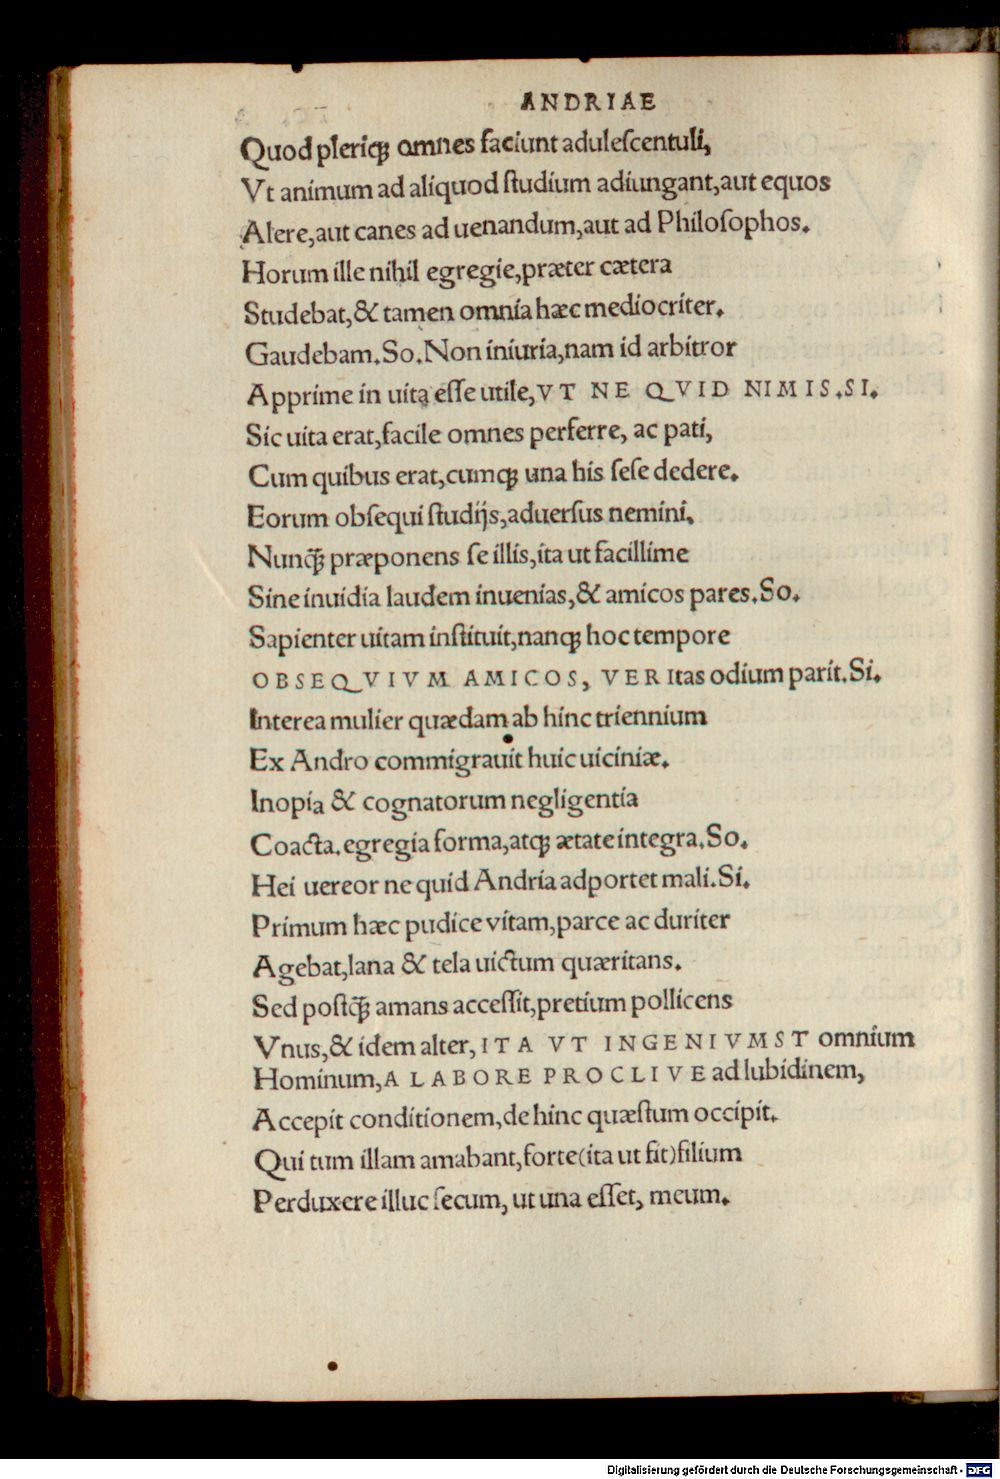 ANDRIAE
Quod pleriqꝫ omnes faciunt aduleſcentuli,
Vt animum ad aliquod ſtudium adiungant,aut equos
Alere,aut canes ad uenandum,aut ad Philoſophos.
Horum ille nihil egregie,præter cætera
Studebat,& tamen omnia hæc mediocriter.
Gaudebam.So.Non iniuria,nam id arbitror
Apprime in uita eſſe utile,VT NE QVID NIMIS.SI.
Sic uita erat,facile omnes perferre, ac pati,
Cum quibus erat,cumqꝫ una his ſeſe dedere.
Eorum obſequi ſtudijs,aduerſus nemini,
Nunq̃ꝫ præponens ſe illis,ita ut facillime
Sine inuidia laudem inuenias,& amicos pares.So.
Sapienter uitam inſtituit,nanqꝫ hoc tempore
OBSEQVIVM AMICOS, VERItas odium parit.Si.
Interea mulier quædam ab hinc triennium
Ex Andro commigrauit huic uiciniæ.
Inopia & cognatorum negligentia
Coacta.egregia forma,atqꝫ ætate integra.So.
Hei uereor ne quid Andria adportet mali.Si.
Primum hæc pudice vitam,parce ac duriter
Agebat,lana & tela uictum quæritans.
Sed poſtq̃ꝫ amans acceſſit,pretium pollicens
Vnus,& idem alter,ITA VT INGENIVMST omnium
Hominum,A LABORE PROCLIVE ad lubidinem,
Accepit conditionem,de hinc quæſtum occipit.
Qui tum illam amabant,forte(ita ut fit)filium
Perduxere illuc ſecum, ut una eſſet, meum.
Digitalisierung gefördert durch die Deutsche Forschungsgemeinschaft - DFG